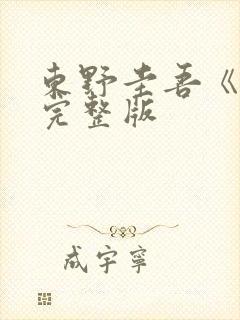 東野圭吾《
完整版
成宇寧